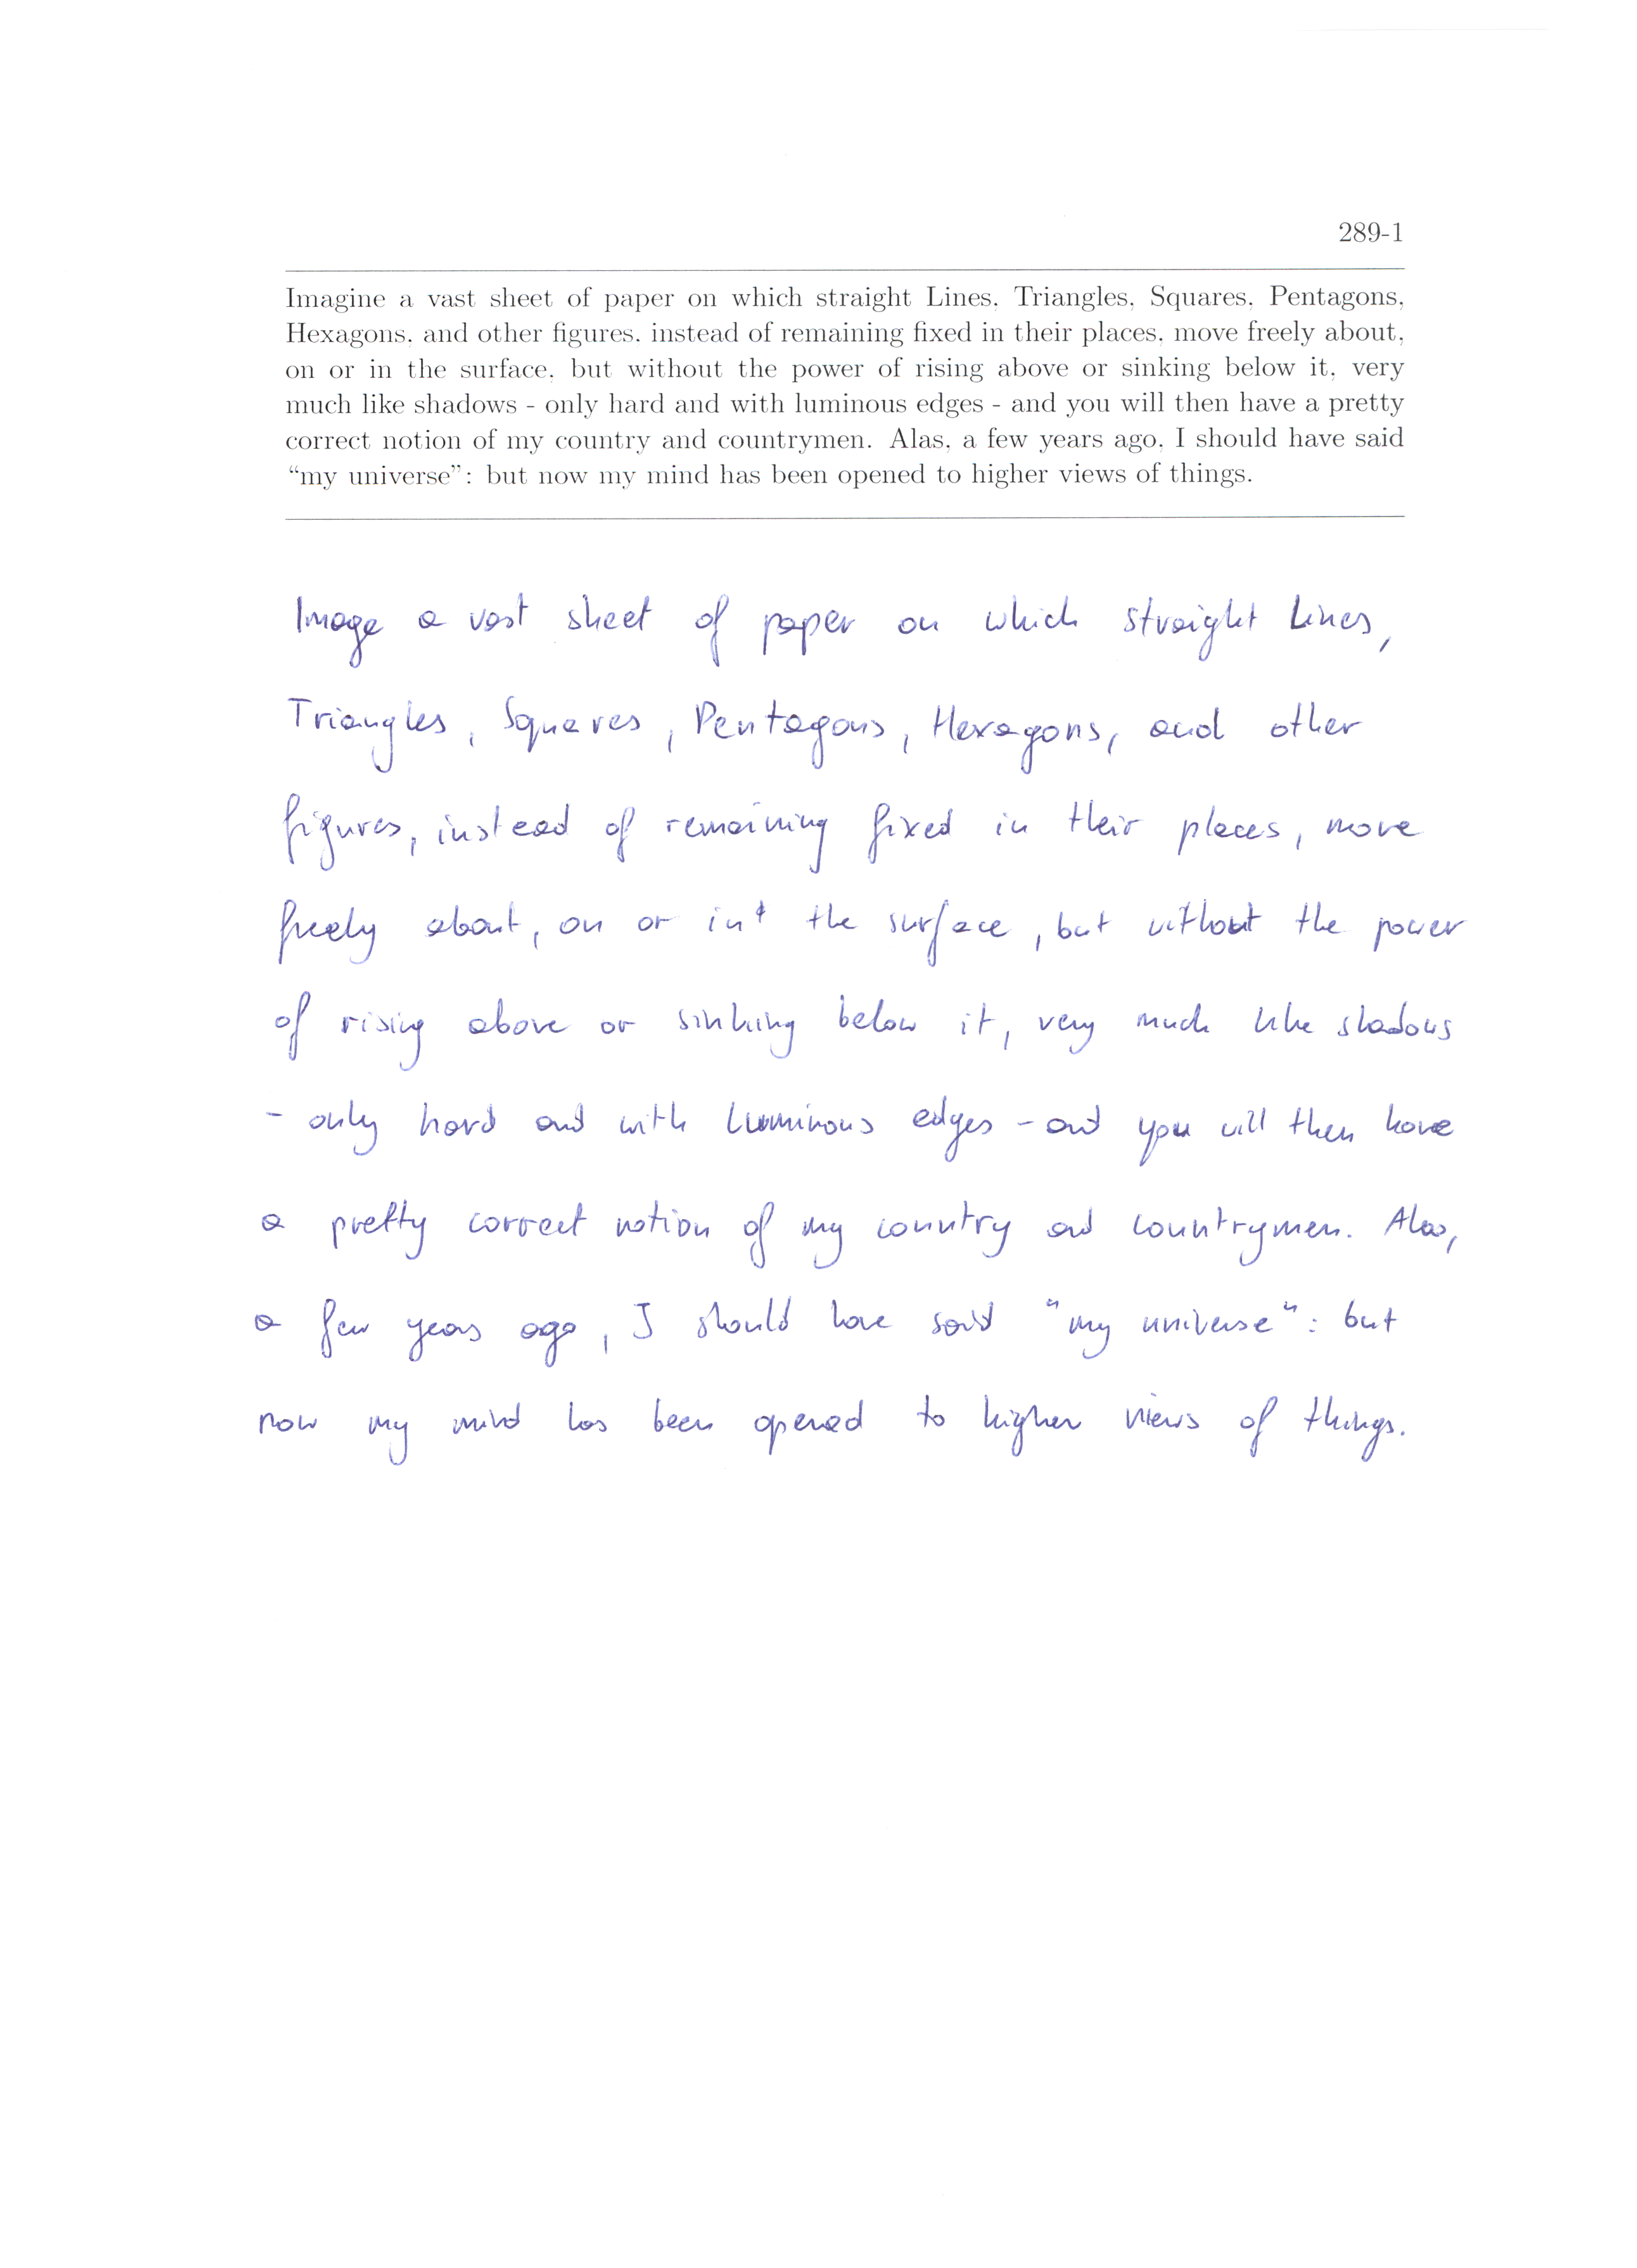 289-1
Imagine a vast sheet of paper on which straight Lines, Triangles, Squares, Pentagons,
Hexagons, and other figures, instead of remaining fixed in their places, move freely about,
on or in the surface, but without the power of rising above or sinking below it, very
much like shadows - only hard and with luminous edges - and you will then have a pretty
correct notion of my country and countrymen. Alas, a few years ago, I should have said
“my universe”: but now my mind has been opened to higher views of things.
Image a vast sheet of paper on which straight Lines,
Triangles, Squares, Pentagons, Hexagons, and other
figures, instead of remaining fixed in their places, move
freely about, on or int the surface, but without the power
of rising above or sinking below it, very much like shadows
- only hard and with luminous edges - and you will then have
a pretty correct notion of my country and countrymen. Alas,
a few years ago, I should have said "my universe": but
now my mind has been opened to higher views of things.